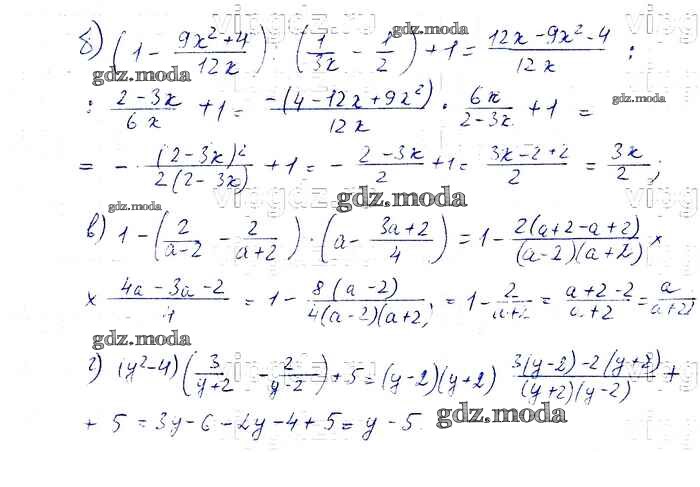 б) (1 - \frac{9x²+4}{12x}) : (\frac{1}{3x} - \frac{1}{2}) + 1 = \frac{12x-9x²-4}{12x} :
: \frac{2-3x}{6x} + 1 = \frac{-(4-12x+9x²)}{12x} · \frac{6x}{2-3x} + 1 =
= - \frac{(2-3x)²}{2(2-3x)} + 1 = - \frac{2-3x}{2} + 1 = \frac{3x-2+2}{2} = \frac{3x}{2};
в) 1 - (\frac{2}{a-2} - \frac{2}{a+2}) · (a - \frac{3a+2}{4}) = 1 - \frac{2(a+2-a+2)}{(a-2)(a+2)} ×
× \frac{4a-3a-2}{4} = 1 - \frac{8(a-2)}{4(a-2)(a+2)} = 1 - \frac{2}{a+2} = \frac{a+2-2}{a+2} = \frac{a}{a+2}
г) (y²-4)(\frac{3}{y+2} - \frac{2}{y-2}) + 5 = (y-2)(y+2) \frac{3(y-2)-2(y+2)}{(y+2)(y-2)} +
+ 5 = 3y-6-2y-4+5 = y-5.
gdz.moda
gdz.moda
gdz.moda
gdz.moda
gdz.moda
gdz.moda
gdz.moda
gdz.moda